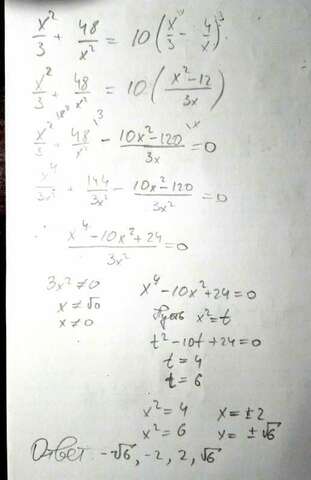 x²/3 + 48/x² = 10 (x/3 - 4/x)
x²/3 + 48/x² = 10 (x²-12 / 3x)
x²/3 + 48/x² - 10x²-120 / 3x = 0
x⁴/3x² + 144/3x² - 10x²-120 / 3x² = 0
x⁴-10x²+24 / 3x² = 0
3x² ≠ 0
x ≠ √0
x ≠ 0
x⁴-10x²+24=0
Пусть x²=t
t²-10t+24=0
t=4
t=6
x²=4 x=±2
x²=6 x=±√6
Ответ -√6, -2, 2, √6